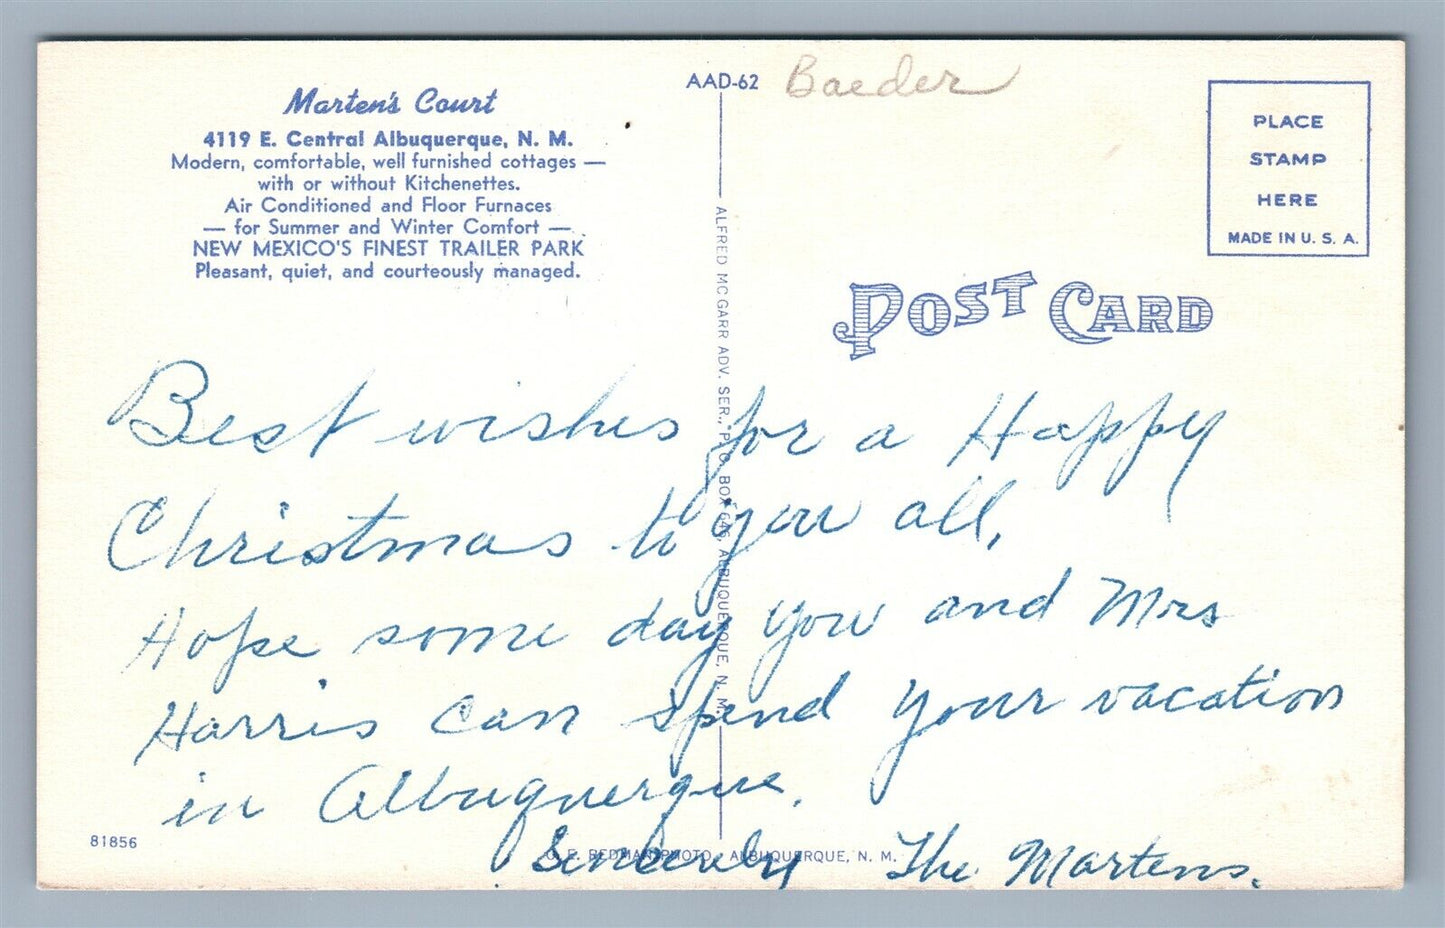 Marten's Court
4119 E. Central Albuquerque, N. M.
Modern, comfortable, well furnished cottages —
with or without Kitchenettes.
Air Conditioned and Floor Furnaces
— for Summer and Winter Comfort —
NEW MEXICO'S FINEST TRAILER PARK
Pleasant, quiet, and courteously managed.
AAD-62
Baeder
PLACE
STAMP
HERE
MADE IN U. S. A.
POST CARD
ALFRED MC GARR ADV. SER., P. O. BOX 646, ALBUQUERQUE, N. M.
Best wishes for a Happy
Christmas to you all,
Hope some day you and Mrs
Harris can spend your vacation
in Albuquerque.
Sincerely The Martens.
81856
C. E. REDMAN PHOTO, ALBUQUERQUE, N. M.